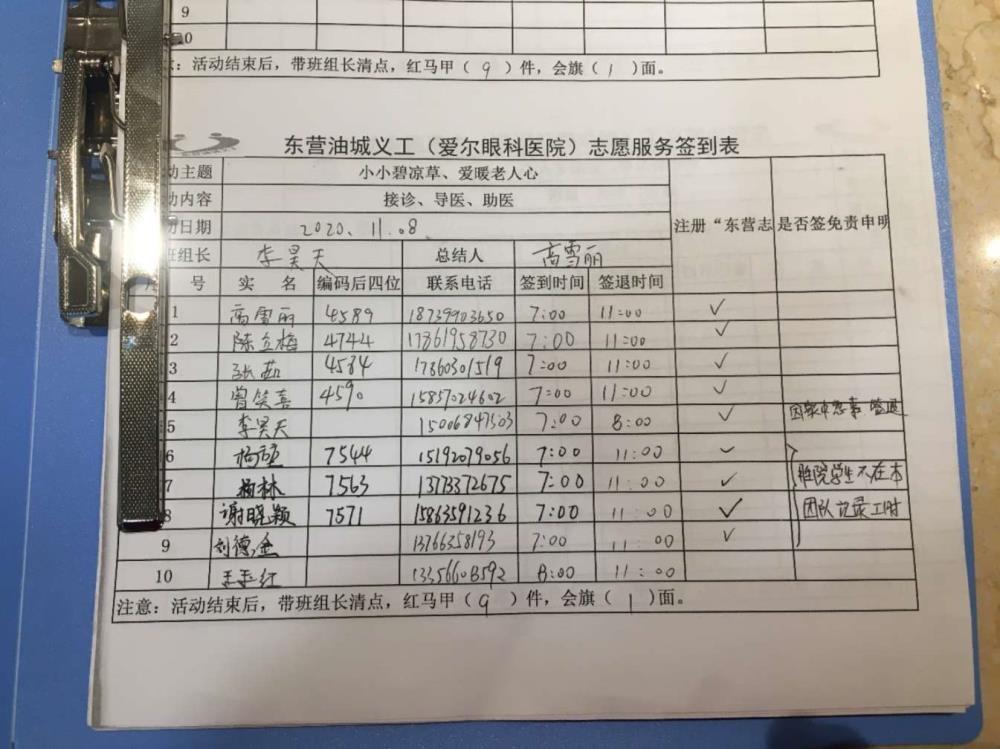 9
10
：活动结束后，带班组长清点，红马甲（ 9 ）件，会旗（ 1 ）面。
东营油城义工（爱尔眼科医院）志愿服务签到表
动主题 小小碧凉草、爱暖老人心
动内容 接诊、导医、助医
日期 2020. 11.08. 注册“东营志 是否签免责申明
班组长 李昊天 总结人 高雪丽
号 实 名 编码后四位 联系电话 签到时间 签退时间
1 高雪丽 4589 18739903650 7:00 11:00 ✓
2 陈立梅 4744 17861958730 7:00 11:00 ✓
3 张茹 4584 17860301519 7:00 11:00 ✓
4 曾笑喜 4590 15857024602 7:00 11:00 ✓
5 李昊天 15006847503 7:00 8:00 ✓ 因家中急事 签退
6 杨 7544 15192079056 7:00 11:00 ✓
7 杨林 7563 1373372675 7:00 11:00 ✓ 胜院学生不在本
8 谢晓颖 7571 15863591236 7:00 11:00 ✓ 团队记录工时
9 刘德金 13766358193 7:00 11:00 ✓
10 王玉红 13356603592 8:00 11:00
注意：活动结束后，带班组长清点，红马甲（ 9 ）件，会旗（ 1 ）面。